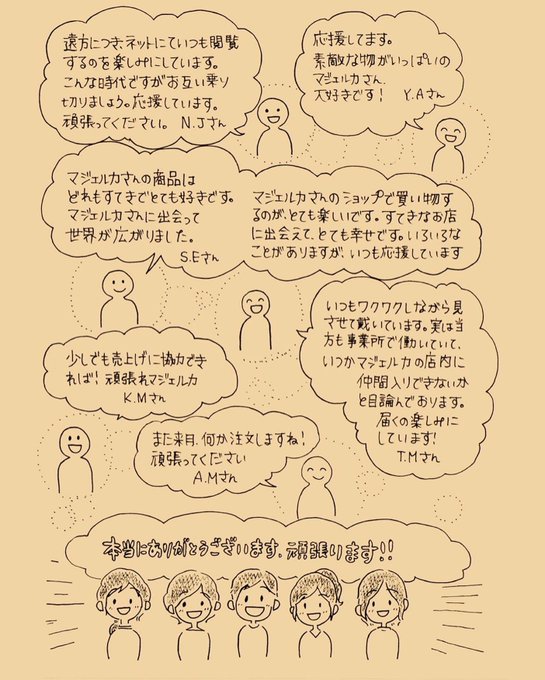 遠方につき、ネットにていつも閲覧
するのを楽しみにしています。
こんな時代ですがお互い乗り
切りましょう。応援しています。
頑張ってください。 N.Jさん
応援してます。
素敵な物がいっぱいの
マジェルカさん、
大好きです！ Y.Aさん
マジェルカさんの商品は
どれもすてきでとても好きです。
マジェルカさんに出会って
世界が広がりました。
S.Eさん
マジェルカさんのショップで買い物す
るのが、とても楽しいです。すてきなお店
に出会えて、とても幸せです。いろいろな
ことがありますが、いつも応援しています
いつもワクワクしながら見
させて戴いています。実は当
方も事業所で働いていて、
いつかマジェルカの店内に
仲間入りできないか
と目論んでおります。
届くの楽しみに
しています！
T.Mさん
少しでも売上げに協力でき
れば！頑張れマジェルカ
K.Mさん
また来月、何か注文しますね！
頑張ってください
A.Mさん
本当にありがとうございます、頑張ります！！